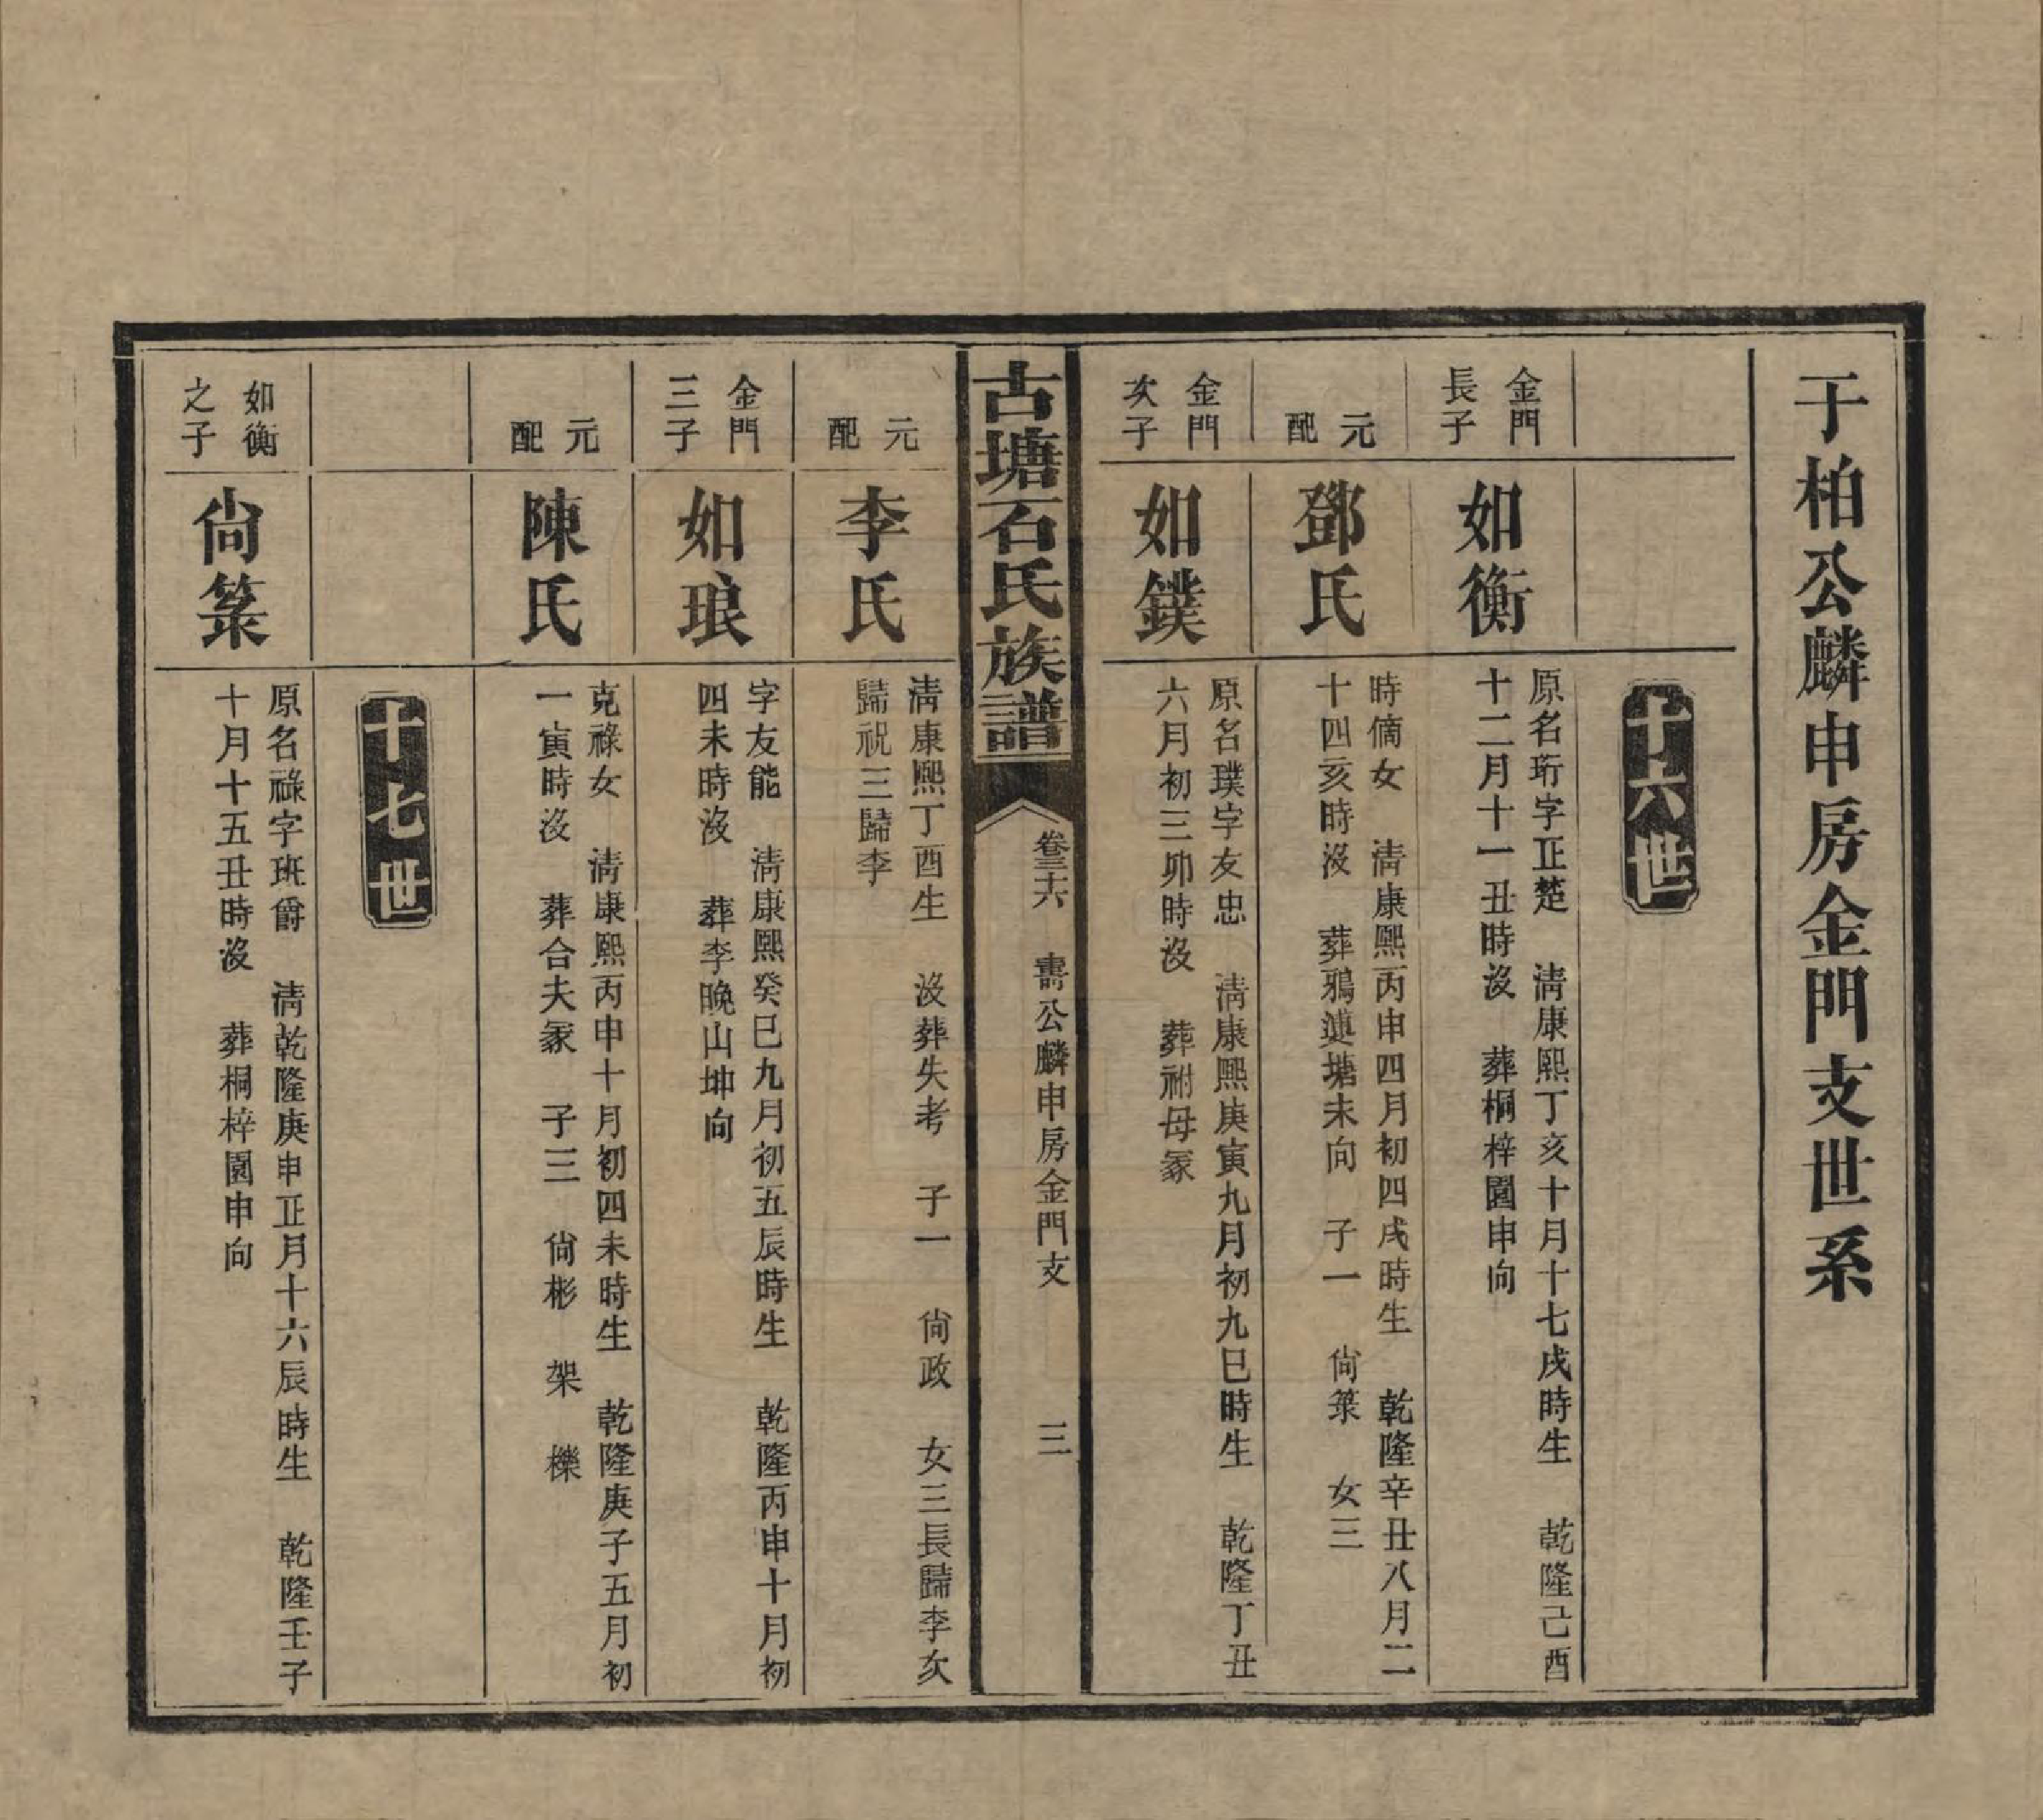 于柏公麟申房金門支世系
十六世
金門
長子
如衡
原名珩字正楚　淸康熙丁亥十月十七戌時生　乾隆己酉
十二月十一丑時沒　葬桐梓園申向
元
配
鄧氏
時僑女　淸康熙丙申四月初四戌時生　乾隆辛丑八月二
十四亥時沒　葬鴉蓮塘未向　子一　尙箂　女三
金門
次子
如鏷
原名璞字友忠　淸康熙庚寅九月初九巳時生　乾隆丁丑
六月初三卯時沒　葬祔母冢
古塘石氏族譜
卷三十六　壽公麟申房金門支　三
元
配
李氏
淸康熙丁酉生　沒葬失考　子一　尙政　女三長歸李次
歸祝三歸李
金門
三子
如琅
字友能　淸康熙癸巳九月初五辰時生　乾隆丙申十月初
四未時沒　葬李晚山坤向
元
配
陳氏
克祿女　淸康熙丙申十月初四未時生　乾隆庚子五月初
一寅時沒　葬合夫冢　子三　尙彬　架　櫟
十七世
如衡
之子
尙箂
原名祿字班爵　淸乾隆庚申正月十六辰時生　乾隆壬子
十月十五丑時沒　葬桐梓園申向